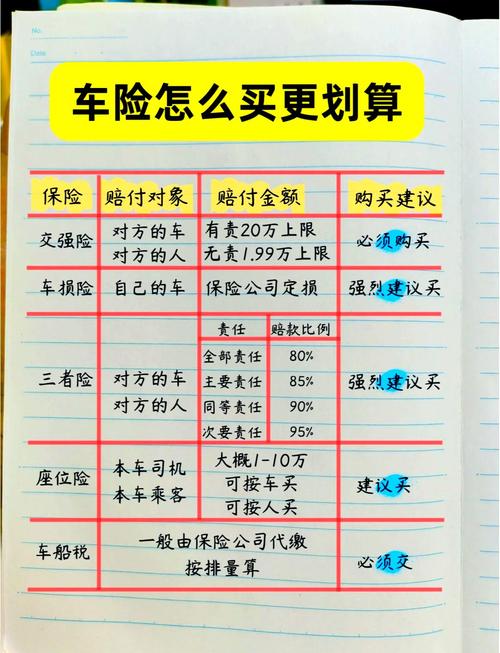 No.
Date
车险怎么买更划算
保险 赔付对象 赔付金额 购买建议
交强险 对方的车 对方的人 有责20万上限 无责1.99万上限 必须购买
车损险 自己的车 保险公司定损 强烈建议买
三者险 对方的车 对方的人 强烈建议买
责任 赔款比例
全部责任 80%
主要责任 85%
同等责任 90%
次要责任 95%
座位险 本车司机 本车乘客 大概1-10万 可按车买 可按人买 建议买
车船税 一般由保险公司代缴 按排量算 必须交